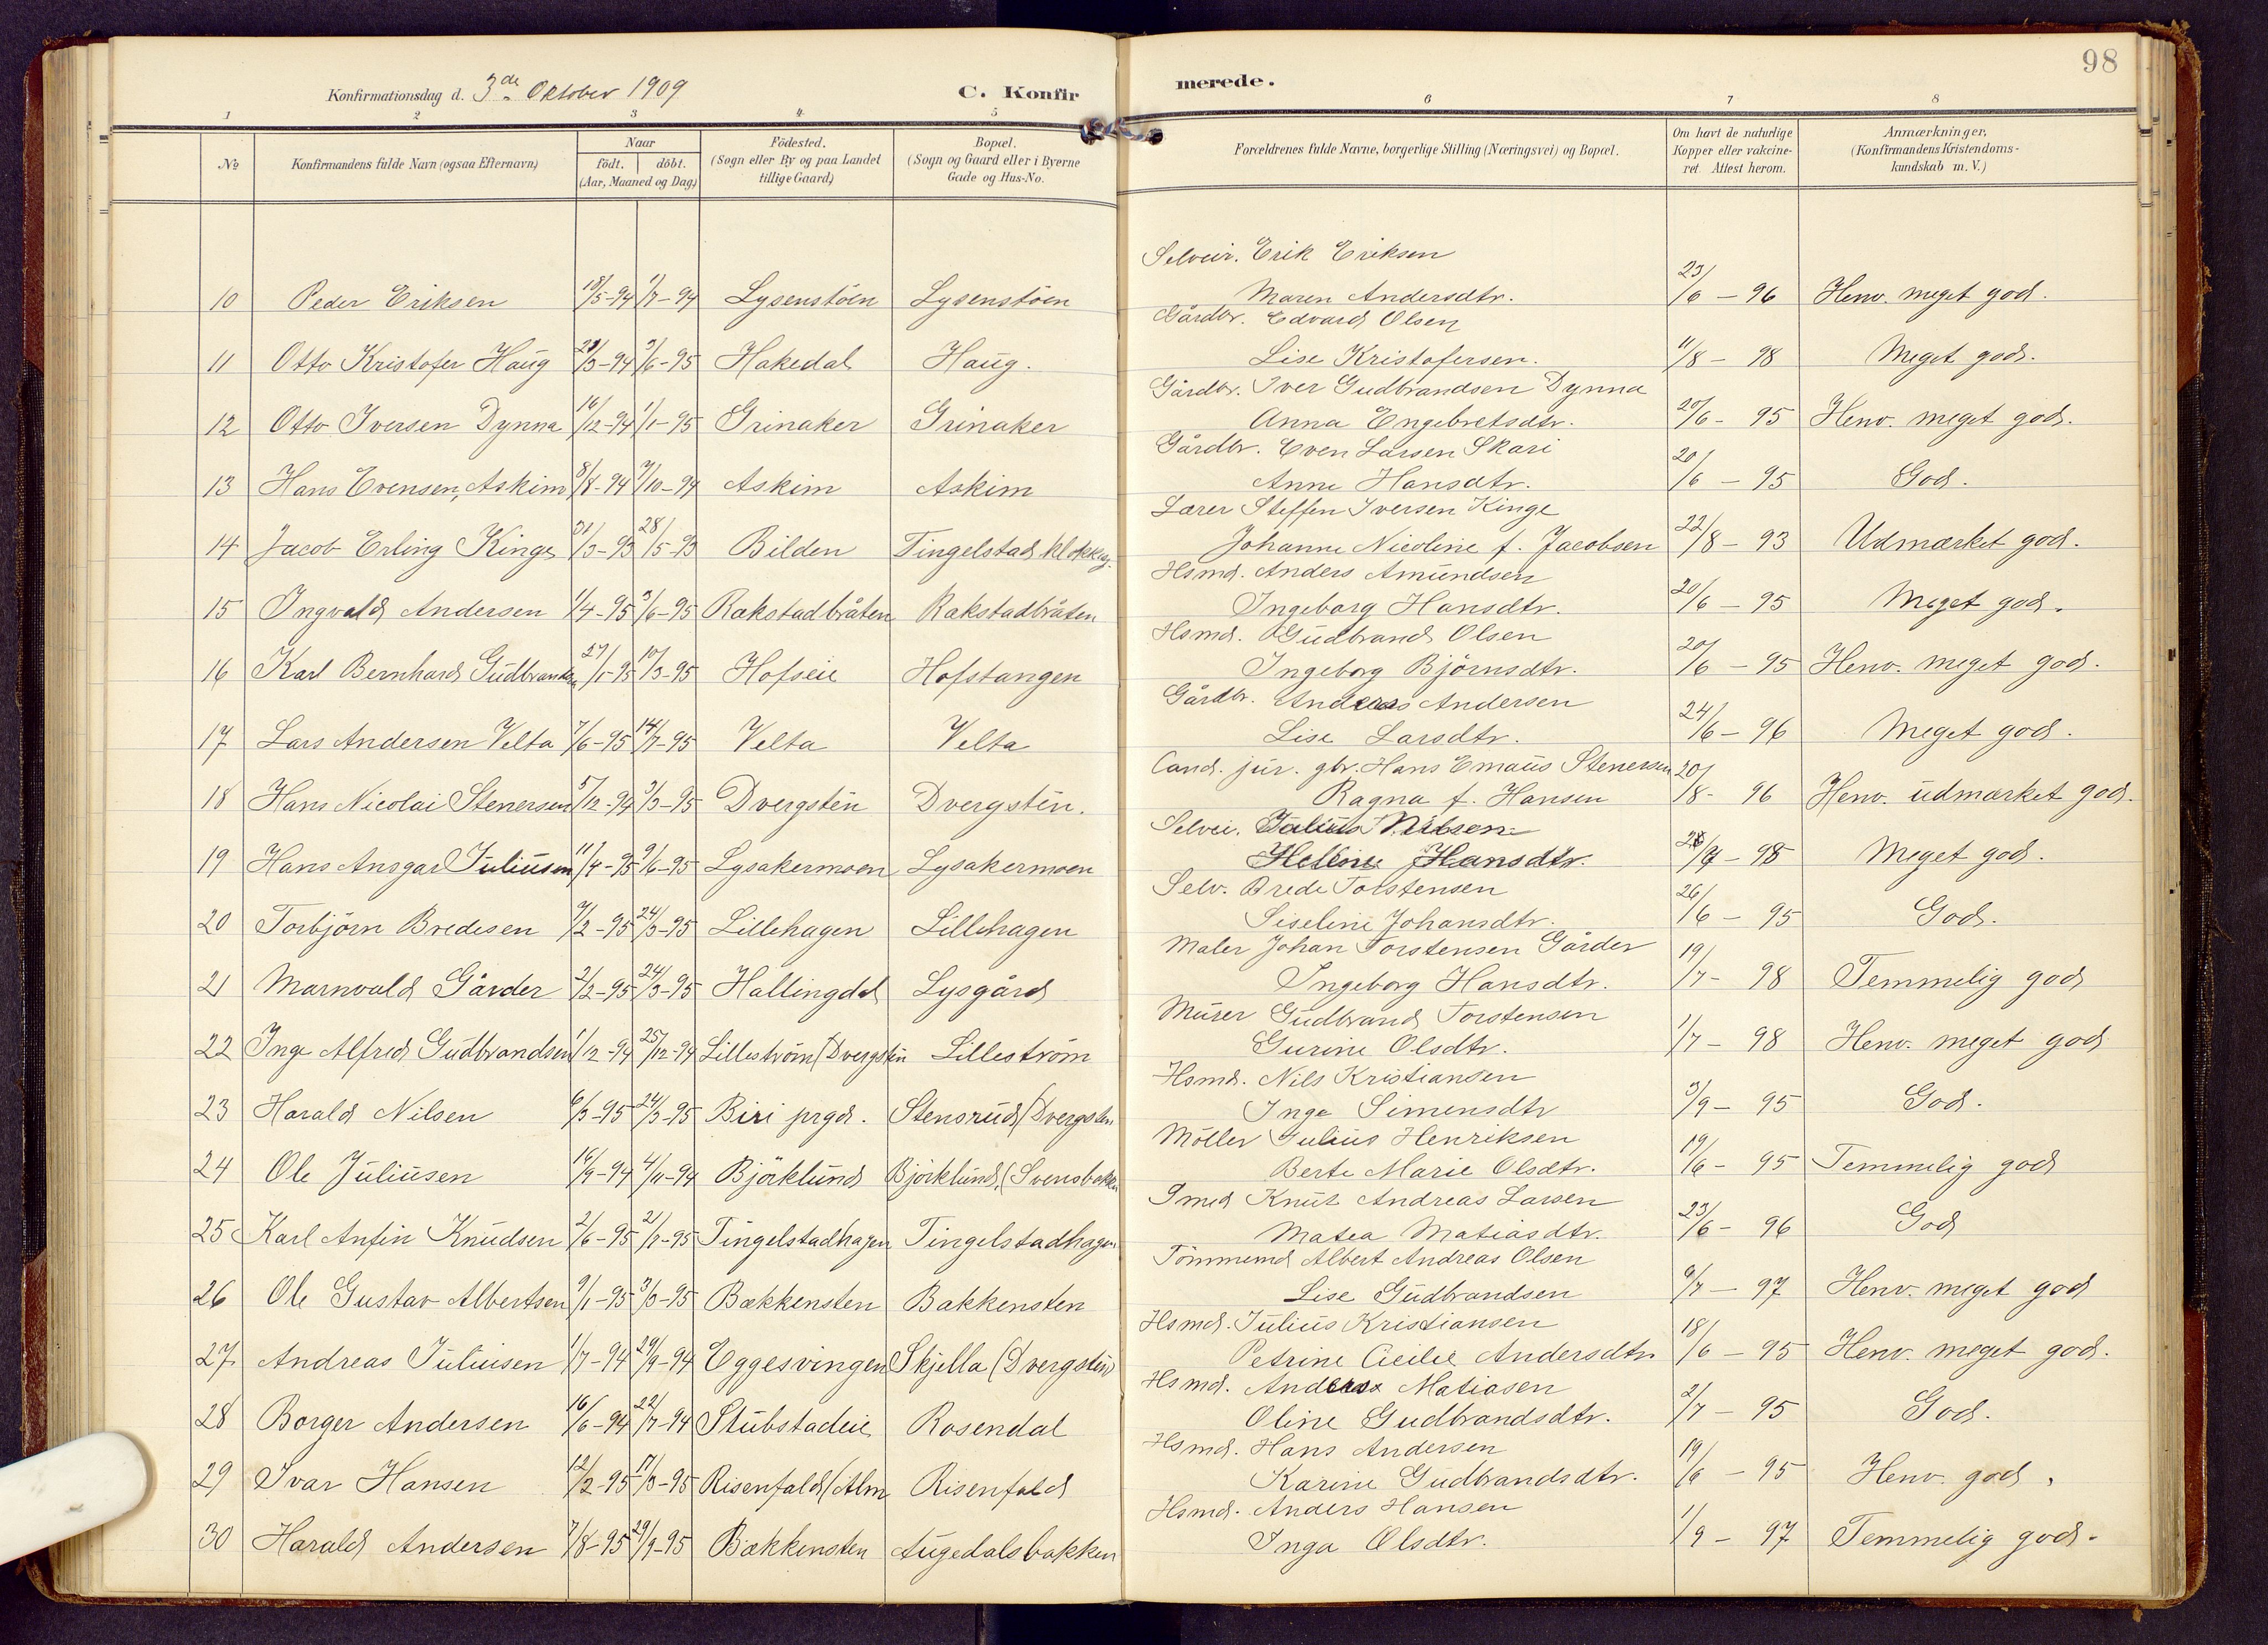 98
Konfirmationsdag d. 3de Oktober 1909
C. Konfirmerede.
1 2 3 4 5 6 7 8
No Konfirmandens fulde Navn (ogsaa Efternavn) Naar födt. döbt. (Aar, Maaned og Dag) Födested. (Sogn eller By og paa Landet tillige Gaard) Bopæl. (Sogn og Gaard eller i Byerne Gade og Hus-No. Forældrenes fulde Navne, borgerlige Stilling (Næringsvei) og Bopæl. Om havt de naturlige Kopper eller vakcineret Attest herom. Anmærkninger, (Konfirmandens Kristendomskundskab m. V.)
Selveir. Erik Eriksen
10 Peder Eriksen 18/5-94 1/7-94 Lysenstöen Lysenstöen Maren Andersdtr. 23/6 - 96 Henv. meget god.
Gårdbr. Edvard Olsen
11 Otto Kristofer Haug /3-94 /6-95 Hakedal Haug. Lise Kristofersen. 11/8 - 98 Meget god.
Gårdbr. Iver Gudbrandsen Dynna
12 Otto Iversen Dynna 16/12-94 1/1-95 Grinaker Grinaker Anna Engebretsdtr. 20/6 - 95 Henv. meget god.
Gårdbr. Even Larsen Skari
13 Hans Evensen, Askim 8/8-94 7/10-94 Askim Askim Anne Hansdtr. 20/6 - 95 God.
Lærer Steffen Iversen Kinge
14 Jacob Erling Kinge 31/3-93 28/5-93 Bilden Tingelstad klokkerg. Johanne Nicoline f. Jacobsen 22/8 - 93 Udmærket god.
Hsmd. Anders Amundsen
15 Ingvald Andersen 1/4-95 3/6-95 Rækstadbråten Rækstadbråten Ingeborg Hansdtr. 20/6 - 95 Meget god.
Hsmd. Gudbrand Olsen
16 Karl Bernhard Gudbrandsen 27/1-95 10/3-95 Hofseie Hofstangen Ingeborg Björnsdtr. 20/6 - 95 Henv. meget god.
Gårdbr. Anders Andersen
17 Lars Andersen Velta 7/6-95 14/7-95 Velta Velta Lise Larsdtr. 24/6 - 96 Meget god.
Cand. jur. gbr. Hans Emaus Stenersen
18 Hans Nicolai Stenersen 5/12-94 3/3-95 Dvergstén Dvergstén. Ragna f. Hansen 20/8 - 96 Henv. udmærket god.
Selvei. Julius Nilsen
19 Hans Ansgar Juliusen 11/4-95 9/6-95 Lysakermoen Lysakermoen Helline Hansdtr. /7 - 98 Meget god.
Selv. Brede Torstensen
20 Torbjörn Bredesen 7/2-95 24/3-95 Lillehagen Lillehagen Siseline Johansdtr. 26/6 - 95 God.
Maler Johan Torstensen Gårder
21 Marnvald Gårder 2/2-95 24/3-95 Hallingdal Lysgård Ingeborg Hansdtr. 19/7 - 98 Temmelig god
Murer Gudbrand Torstensen
22 Inge Alfred Gudbrandsen 1/12-94 25/12-94 Lilleström (Dvergstén Lilleström Gurine Olsdtr. 1/7 - 98 Henv. meget god
Hsmd. Nils Kristiansen
23 Harald Nilsen 6/3-95 24/3-95 Biri prgd. Stensrud (Dvergsten Inge Simensdtr 3/9 - 95 God.
Möller Julius Henriksen
24 Ole Juliusen 16/9-94 4/11-94 Björklund Björklund, (Svensbakken Berte Marie Olsdtr. 19/6 - 95 Temmelig god
Smed Knut Andreas Larsen
25 Karl Anfin Knudsen 2/6-95 21/7-95 Tingelstadhagen Tingelstadhagen Matea Matiasdtr. 23/6 - 96 God
Tömmermd Albert Andreas Olsen
26 Ole Gustav Albertsen 9/1-95 3/3-95 Bækkensten Bækkensten Lise Gudbrandsen 6/7 - 97 Henv. meget god
Hsmd. Julius Kristiansen
27 Andreas Juliusen 1/7-94 29/9-94 Eggesvingen Skjella (Dvergstén) Petrine Cicilie Andersdtr 18/6 - 95 Henv. meget god.
Hsmd. Anders Matiasen
28 Borger Andersen 16/6-94 22/7-94 Stubstadeie Rosendal Oline Gudbrandsdtr. 2/7 - 95 God.
Hsmd. Hans Andersen
29 Ivar Hansen 12/2-95 17/3-95 Risenfald (Alm Risenfald Karine Gudbrandsdtr. 19/6 - 95 Henv. god.
Hsmd. Anders Hansen
30 Harald Andersen 7/8-95 29/9-95 Bækkensten Augedalsbakken Inga Olsdtr. 1/9 - 97 Temmelig god.